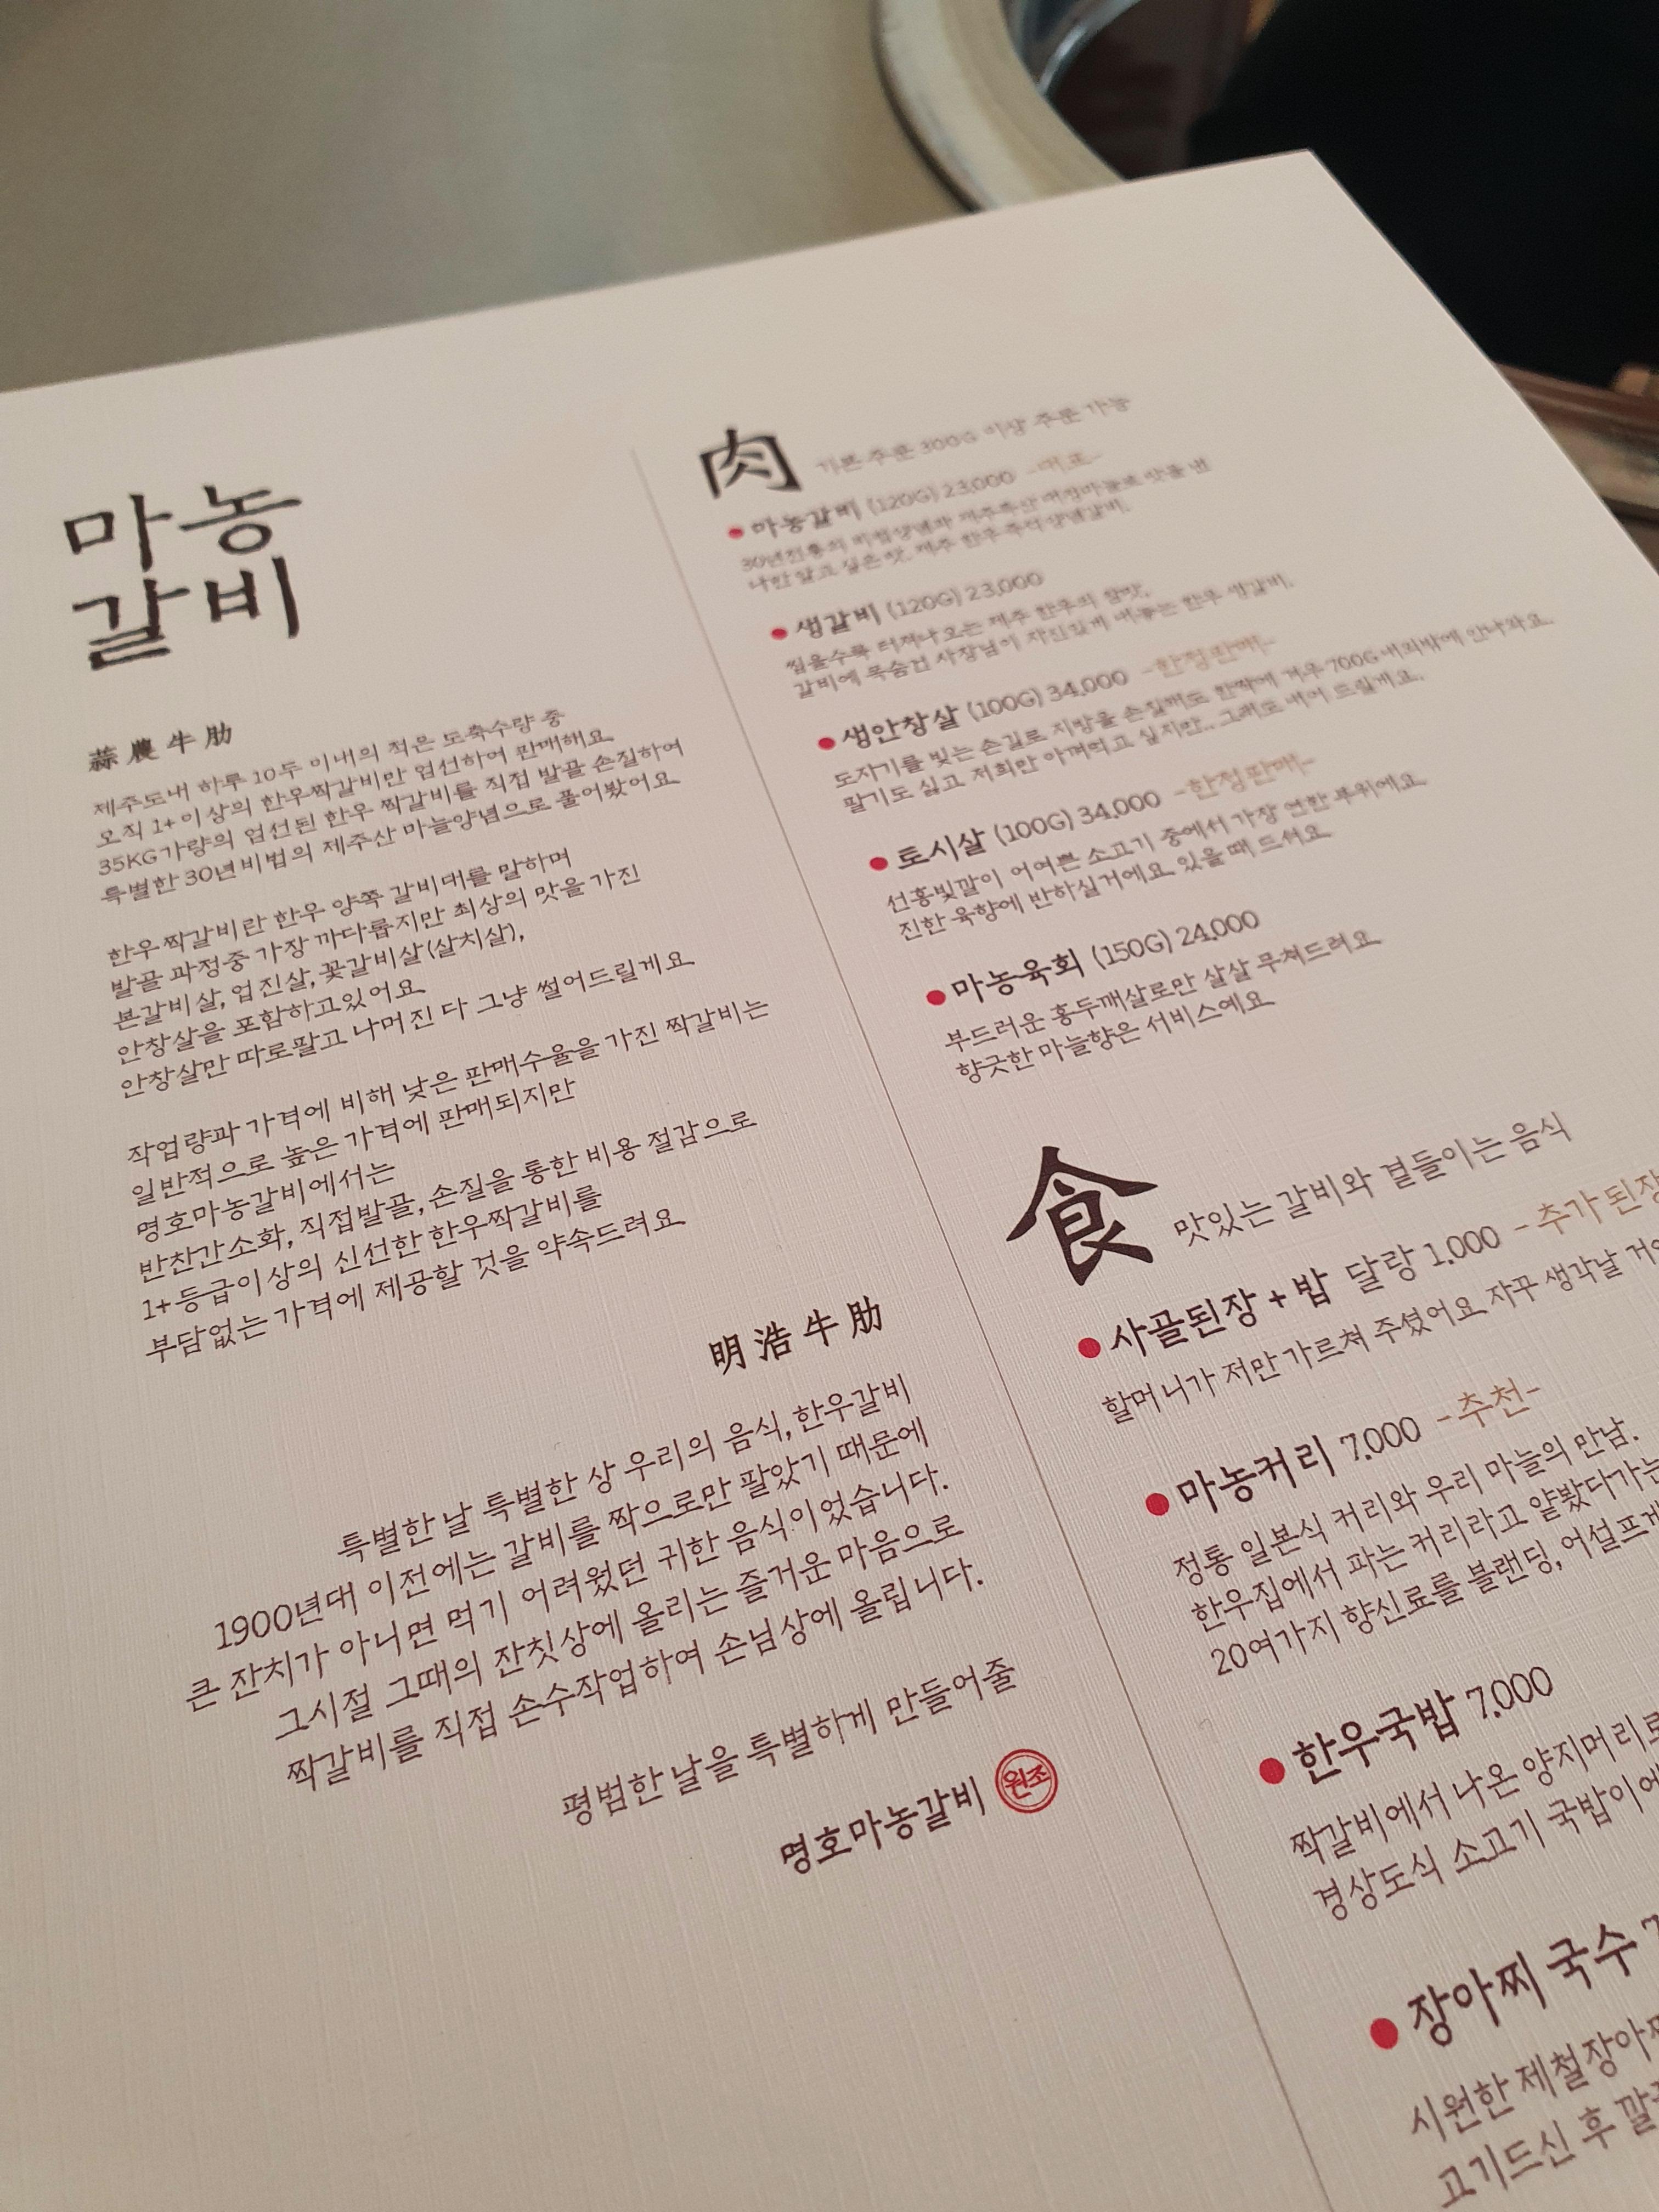 마농
갈비
蒜農牛肋
제주도내 하루 10두 이내의 적은 도축수량 중
오직 1+이상의 한우짝갈비만 엄선하여 판매해요.
35KG가량의 엄선된 한우 짝갈비를 직접 발골 손질하여
특별한 30년비법의 제주산 마늘양념으로 풀어봤어요.
한우짝갈비란 한우 양쪽 갈비대를 말하며
발골 과정중 가장 까다롭지만 최상의 맛을 가진
본갈비살, 업진살, 꽃갈비살(살치살),
안창살을 포함하고있어요.
안창살만 따로팔고 나머진 다 그냥 썰어드릴게요.
작업량과 가격에 비해 낮은 판매수율을 가진 짝갈비는
일반적으로 높은 가격에 판매되지만
명호마농갈비에서는
반찬간소화, 직접발골, 손질을 통한 비용 절감으로
1+등급이상의 신선한 한우짝갈비를
부담없는 가격에 제공할 것을 약속드려요.
明浩牛肋
특별한 날 특별한 상 우리의 음식, 한우갈비
1900년대 이전에는 갈비를 짝으로만 팔았기 때문에
큰 잔치가 아니면 먹기 어려웠던 귀한 음식이었습니다.
그시절 그때의 잔칫상에 올리는 즐거운 마음으로
짝갈비를 직접 손수작업하여 손님상에 올립니다.
평범한 날을 특별하게 만들어줄
명호마농갈비 원조
肉 기본 주문 300G 이상 주문 가능
마농갈비 (120G) 23,000 -대표-
30년전통의 비법양념과 제주특산 마늘로 맛을 낸
나만 알고 싶은 맛. 제주 한우 즉석양념갈비.
생갈비 (120G) 23,000
씹을수록 터져나오는 제주 한우의 참맛.
갈비에 목숨건 사장님이 자신있게 내놓는 한우 생갈비.
생안창살 (100G) 34,000 -한정판매-
도자기를 빚는 손길로 지방을 손질해도 한짝에 겨우 700G내외밖에 안나와요.
팔기도 싫고 저희만 아껴먹고 싶지만.. 그래도 내어 드릴게요.
토시살 (100G) 34,000 -한정판매-
선홍빛깔이 어여쁜 소고기 중에서 가장 연한 부위에요.
진한 육향에 반하실거에요. 있을 때 드셔요.
마농육회 (150G) 24,000
부드러운 홍두깨살로만 살살 무쳐드려요.
향긋한 마늘향은 서비스예요.
食 맛있는 갈비와 곁들이는 음식
사골된장 + 밥 달랑 1,000 -추가 된장
할머니가 저만 가르쳐 주셨어요. 자꾸 생각날
마농커리 7,000 -추천-
정통 일본식 커리와 우리 마늘의 만남.
한우집에서 파는 커리라고 얕봤다가는
20여가지 향신료를 블랜딩, 어설프게
한우국밥 7,000
짝갈비에서 나온 양지머리로
경상도식 소고기 국밥이에
장아찌 국수
시원한 제철장아찌
고기드신 후